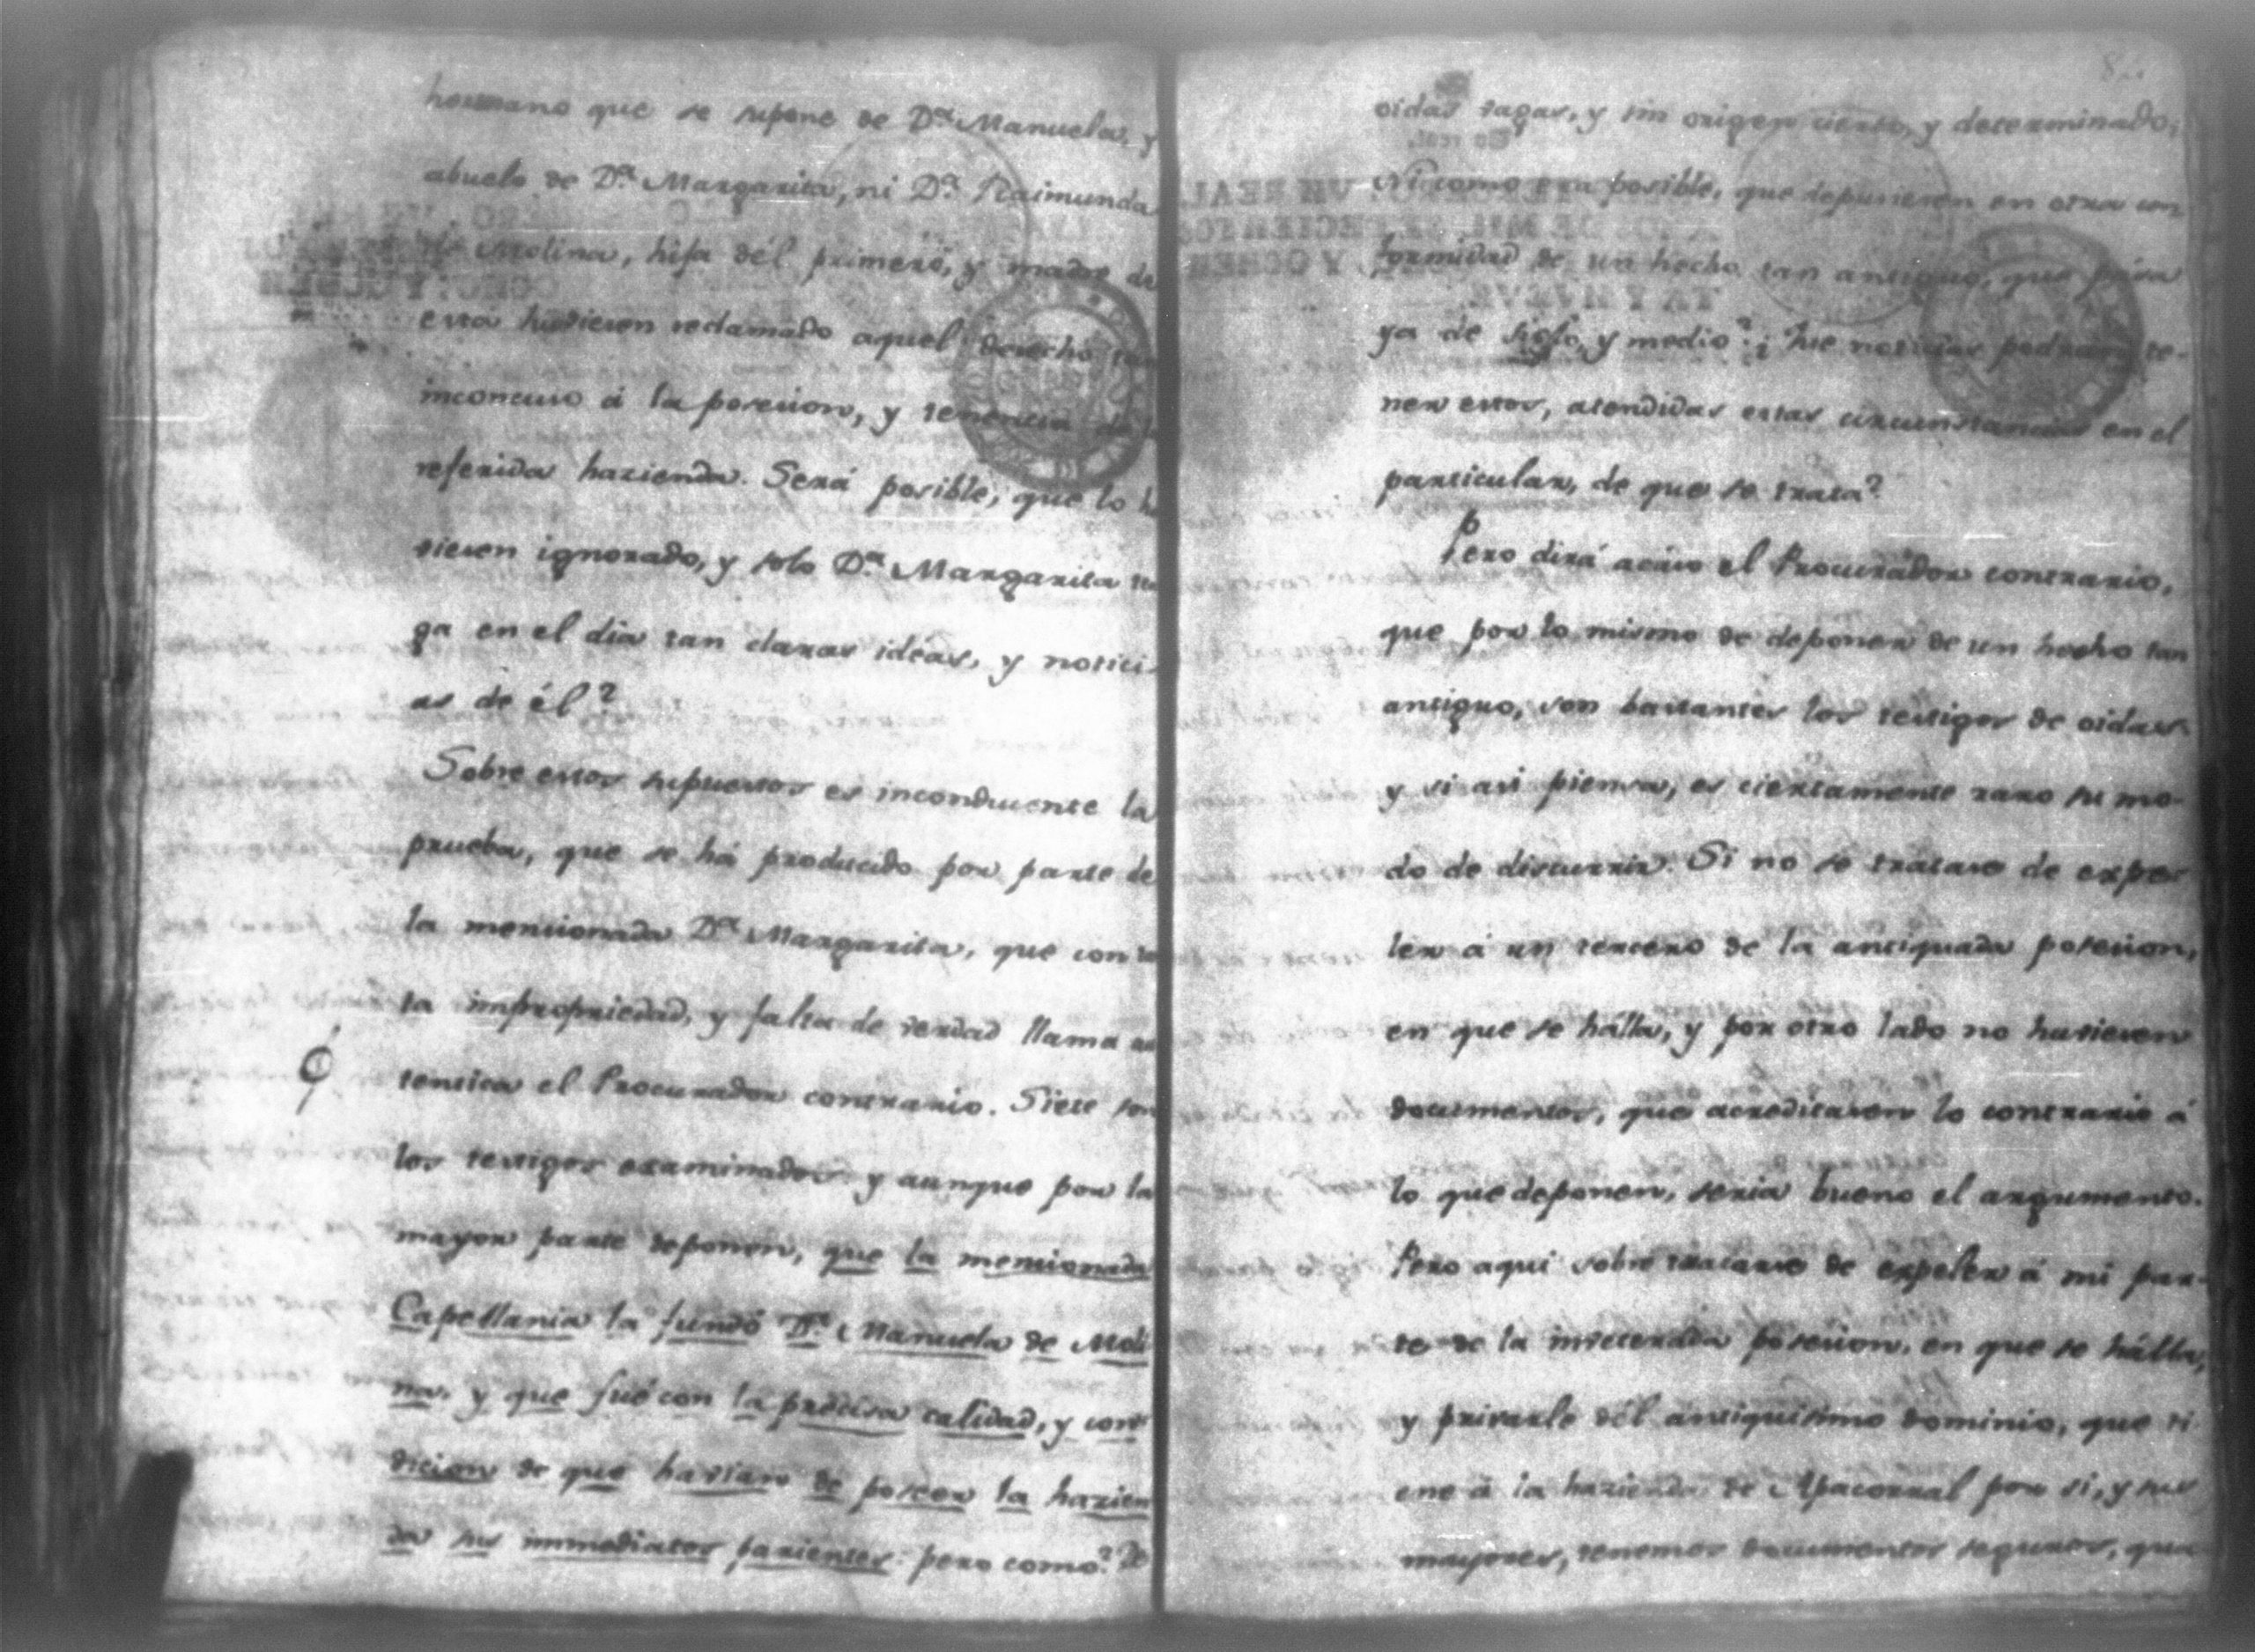 hermano que se supone de D.ª Manuela, y
abuelo de D.ª Margarita, ni D.ª Raimunda
de Molina, hija dél primero, y madre de
esta huvieren reclamado aquel derecho tan
inconcuso á la posesion, y tenencia de la
referida hazienda. Será posible, que lo hu
vieren ignorado, y solo D.ª Margarita ten
ga en el dia tan claras idéas, y notici-
as de él?
Sobre estos supuestos es inconducente la
prueba, que se há producido por parte de
la mencionada D.ª Margarita, que con tan
ta impropriedad, y falta de verdad llama au
tentica el Procurador contrario. Siete son
los testigos examinados y aunque por la
mayor parte deponen, que la mencionada
Capellania la fundó D.ª Manuela de Moli
na, y que fué con la precisa calidad, y con
dicion de que havian de poseer la hazien
da sus immediatos parientes: pero como? De
82
oidas vagas, y sin origen cierto, y determinado,
Ni como era posible, que depusiesen en otra con
formidad de un hecho tan antiguo, que pasa
ya de siglo, y medio? ¿Que noticias podran te-
ner estos, atendidas estas circunstancias en el
particular, de que se trata?
Pero dirá acaso el Procurador contrario,
que por lo mismo de deponer de un hecho tan
antiguo, son bastantes los testigos de oidas
y si asi piensa, es ciertamente raro su mo-
do de discurrir. Si no se tratase de expe-
ler á un tercero de la antiquada posesion,
en que se hálla, y por otro lado no huvieren
documentos, que acreditasen lo contrario á
lo que deponen, seria bueno el argumento.
Pero aqui sobre tratarse de expeler á mi par-
te de la inveterada posesion, en que se hálla,
y privarle dél antiquisimo dominio, que ti
ene á la hazienda de Apacorral por si, y sus
mayores, tenemos documentos seguros, que